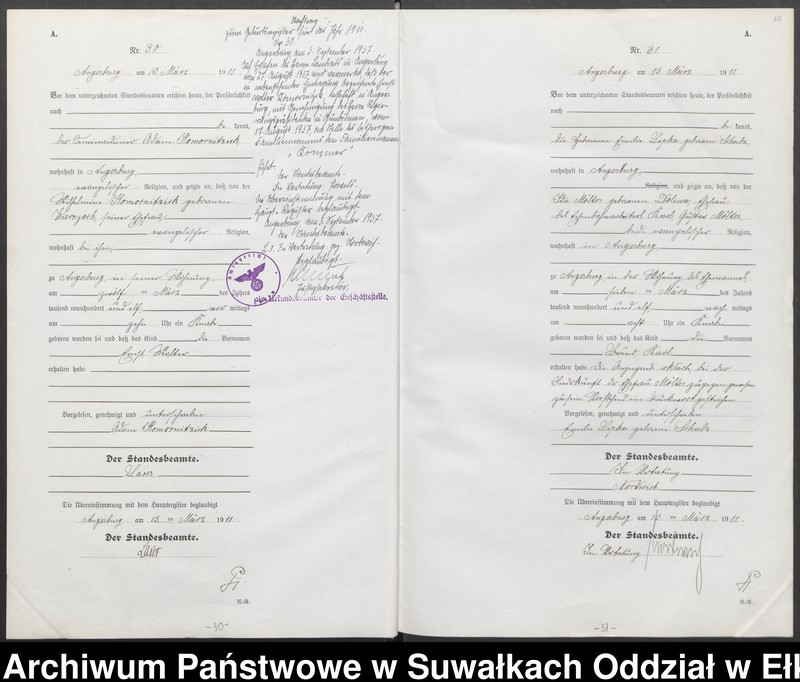 A.
Nr. 30
Angerburg am 13 März 1911.
Vor dem unterzeichneten Standesbeamten erschien heute, der Persönlichkeit
nach
be kannt,
der Seminardiener Adam Komornitzick
wohnhaft in Angerburg
evangelischer Religion, und zeigte an, daß von der
Wilhelmine Komornitzick geborenen
seiner Ehefrau,
evangelischer Religion,
wohnhaft bei ihm,
zu Angerburg, in seiner Wohnung,
am zwölf ten März des Jahres
tausend neunhundert und elf, vor mittags
um zehn Uhr ein Knabe
geboren worden sei und daß das Kind die Vornamen
Ernst Walter
erhalten habe.
Vorgelesen, genehmigt und unterschrieben
Adam Komornitzick
Der Standesbeamte.
Laser
Die Übereinstimmung mit dem Hauptregister beglaubigt
Angerburg am 13 ten März 1911.
Der Standesbeamte.
Laser
N.-R.
-30-
Nachtrag
zum Geburtsregister für das Jahr 1911
Nr. 30.
Angerburg am 3. September 1937.
Auf Ersuchen des Herrn Landrats in Angerburg
vom 27. August 1937 wird vermerkt, daß der
in nebenstehender Eintragung bezeichnete Ernst
Walter Komornitzick, wohnhaft in Anger-
burg, mit Genehmigung des Herrn Regie-
rungspräsidenten in Gumbinnen, vom
17. August 1937, an Stelle des bisherigen
Familiennamens den Familiennamen
"Kommer"
führt.
Der Standesbeamte.
In Vertretung:
Die Übereinstimmung mit dem
Haupt-Register beglaubigt.
Angerburg, den 3. September 1937.
Der Standesbeamte
L.S. In Vertretung. gez.
Beglaubigt:
Justizsekretär.
als Urkundsbeamter der Geschäftsstelle.
A.
Nr. 31
Angerburg am 13 März 1911.
Vor dem unterzeichneten Standesbeamten erschien heute, der Persönlichkeit
nach
be kannt,
die Hebamme Emilie Lipka geborene Schulz,
wohnhaft in Angerburg,
Religion, und zeigte an, daß von der
Ida Möller geborenen Döling, Ehefrau
des Karl Gustav Möller,
beide evangelischer Religion,
wohnhaft in Angerburg,
zu Angerburg in der Wohnung des Ehemannes,
am sieben ten März des Jahres
tausend neunhundert und elf, nach mittags
um acht Uhr ein Knabe
geboren worden sei und daß das Kind die Vornamen
Bruno Karl
erhalten habe. Die Anzeigende erklärt, bei der
Niederkunft der Ehefrau Möller zugegen gewesen
zu sein. Vorstehend ein Druckwort gestrichen
Vorgelesen, genehmigt und unterschrieben
Emilie Lipka geborene Schulz
Der Standesbeamte.
In Vertretung
Nordwich
Die Übereinstimmung mit dem Hauptregister beglaubigt
Angerburg am 13 ten März 1911.
Der Standesbeamte.
In Vertretung
N.-R.
-31-
Archiwum Państwowe w Suwałkach Oddział w Ełk